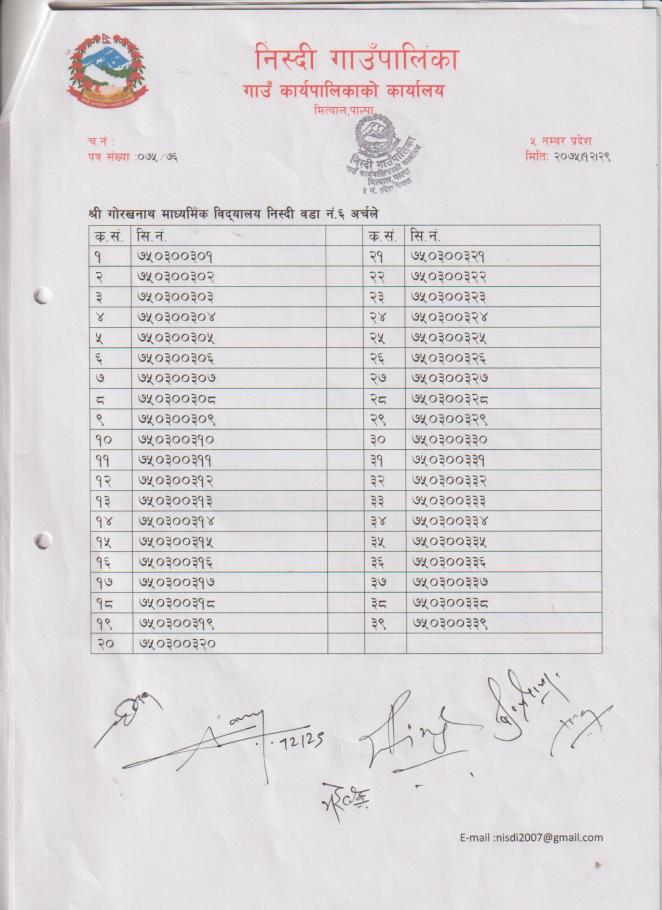 निस्दी गाउँपालिका
गाउँ कार्यपालिकाको कार्यालय
मित्याल,पाल्पा
च.नं :
५ नम्बर प्रदेश
पत्र संख्या :०७५/७६
मितिः २०७५।१२।२९
निस्दी गाउँपालिका
गाउँ कार्यपालिकाको कार्यालय
मित्याल, पाल्पा
५ नं. प्रदेश नेपाल
श्री गोरखनाथ माध्यमिक विद्यालय निस्दी वडा नं.६ अर्चले
क.सं. सि.नं. क.सं. सि.नं.
१ ७५०३००३०१ २१ ७५०३००३२१
२ ७५०३००३०२ २२ ७५०३००३२२
३ ७५०३००३०३ २३ ७५०३००३२३
४ ७५०३००३०४ २४ ७५०३००३२४
५ ७५०३००३०५ २५ ७५०३००३२५
६ ७५०३००३०६ २६ ७५०३००३२६
७ ७५०३००३०७ २७ ७५०३००३२७
८ ७५०३००३०८ २८ ७५०३००३२८
९ ७५०३००३०९ २९ ७५०३००३२९
१० ७५०३००३१० ३० ७५०३००३३०
११ ७५०३००३११ ३१ ७५०३००३३१
१२ ७५०३००३१२ ३२ ७५०३००३३२
१३ ७५०३००३१३ ३३ ७५०३००३३३
१४ ७५०३००३१४ ३४ ७५०३००३३४
१५ ७५०३००३१५ ३५ ७५०३००३३५
१६ ७५०३००३१६ ३६ ७५०३००३३६
१७ ७५०३००३१७ ३७ ७५०३००३३७
१८ ७५०३००३१८ ३८ ७५०३००३३८
१९ ७५०३००३१९ ३९ ७५०३००३३९
२० ७५०३००३२०
E-mail :nisdi2007@gmail.com